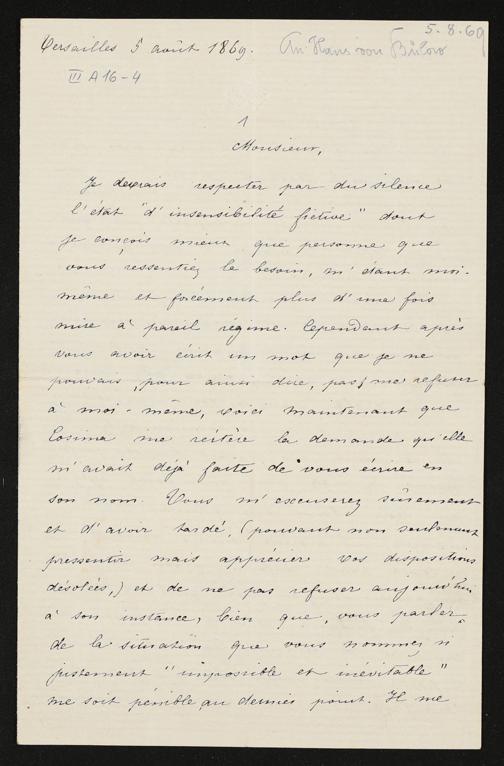 5-8-69
Versailles 5 août 1869. An Hans von Bülow
III A 16-4
1
Monsieur,
Je devrais respecter par du silence
l'état "d'insensibilité fictive" dont
je conçois mieux que personne que
vous ressentiez le besoin, m'étant moi-
même et forcément plus d'une fois
mise à pareil régime. Cependant après
vous avoir écrit un mot que je ne
pouvais, pour ainsi dire, pas me refuser
à moi-même, voici maintenant que
Cosima me réitère la demande qu'elle
m'avait déjà faite de vous écrire en
son nom. Vous m'excuserez sûrement
et d'avoir tardé, (pouvant non seulement
pressentir mais apprécier vos dispositions
désolées,) et de ne pas refuser aujourd'hui
à son instance, bien que, vous parler
de la situation que vous nommez si
justement "impossible et inévitable"
me soit pénible au dernier point. Il me